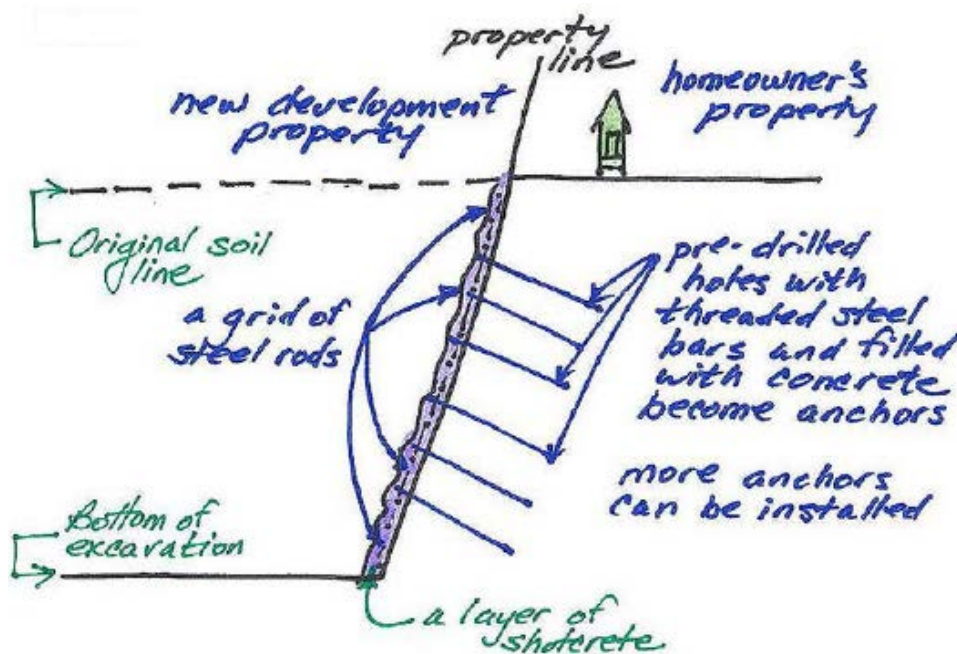 property
line
new development
property
homeowner's
property
Original soil
line
a grid of
steel rods
pre-drilled
holes with
threaded steel
bars and filled
with concrete
become anchors
more anchors
can be installed
Bottom of
excavation
a layer of
shotcrete